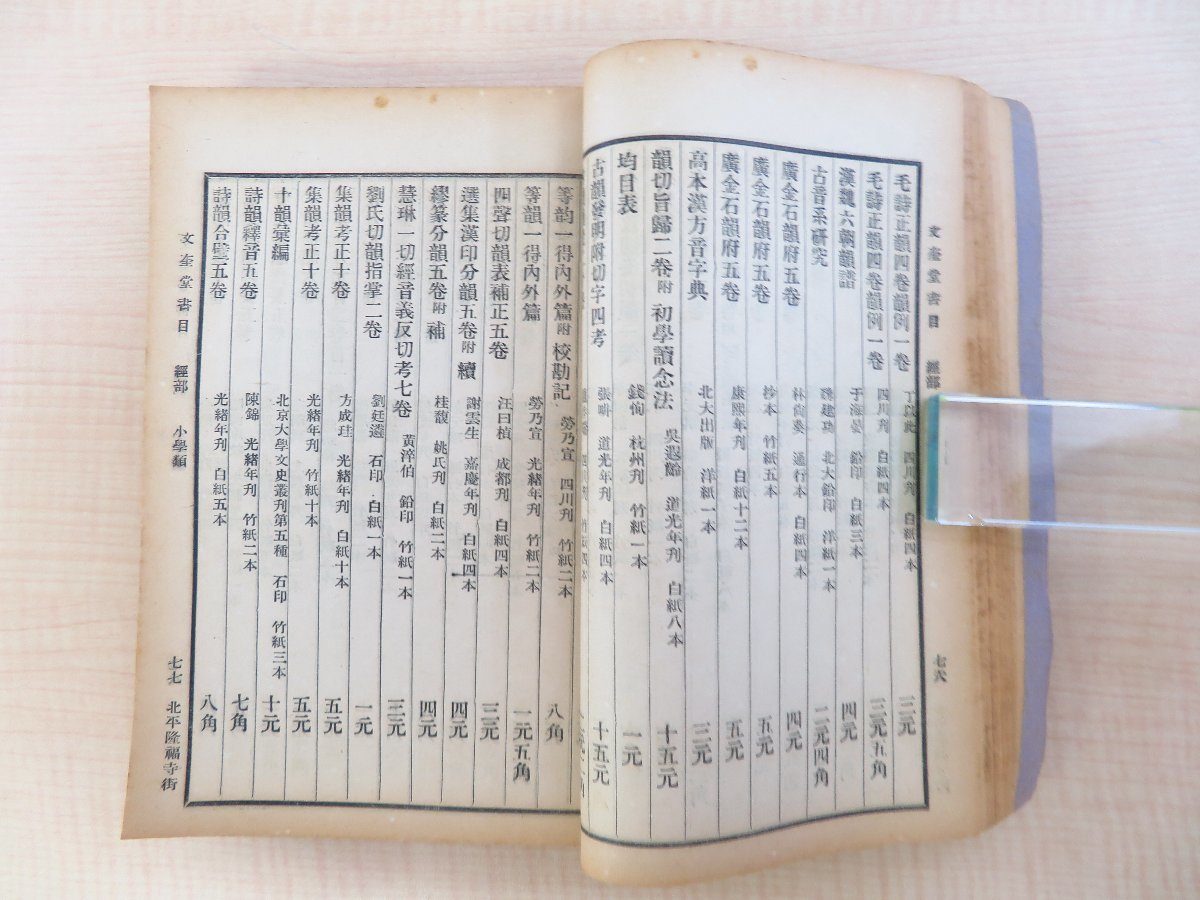 文奎堂書目 經部 七六
毛詩正韻四卷韻例一卷 丁以此 四川刊 白紙四本 三元
毛詩正韻四卷韻例一卷 四川刊 白紙四本 三元五角
漢魏六朝韻譜 于海晏 鉛印 白紙三本 四元
古音系研究 魏建功 北大鉛印 洋紙一本 二元四角
廣金石韻府五卷 林尙葵 通行本 白紙四本 四元
廣金石韻府五卷 抄本 竹紙五本 五元
廣金石韻府五卷 康熙年刊 白紙十二本 五元
高本漢方音字典 北大出版 洋紙一本 三元
韻切旨歸二卷附初學讀念法 吳遐齡 道光年刊 白紙八本 十五元
均目表 錢恂 杭州刊 竹紙一本 一元
古韻發明附切字四考 張畊 道光年刊 白紙四本 十五元
等韵一得內外篇附校勘記 勞乃宣 四川刊 竹紙二本 八角
等韻一得內外篇 勞乃宣 光緖年刊 竹紙二本 一元五角
四聲切韻表補正五卷 汪曰楨 成都刊 白紙四本 三元
選集漢印分韻五卷附續 謝雲生 嘉慶年刊 白紙四本 四元
繆篆分韻五卷附補 桂馥 姚氏刊 白紙二本 四元
慧琳一切經音義反切考七卷 黃淬伯 鉛印 竹紙一本 三元
劉氏切韻指掌二卷 劉廷遴 石印 白紙一本 一元
集韻考正十卷 方成珪 光緖年刊 白紙十本 五元
集韻考正十卷 光緖年刊 竹紙十本 五元
十韻彙編 北京大學文史叢刊第五種 石印 竹紙三本 十元
詩韻釋音五卷 陳錦 光緖年刊 竹紙二本 七角
詩韻合璧五卷 光緖年刊 白紙五本 八角
文奎堂書目 經部 小學類 七七 北平隆福寺街